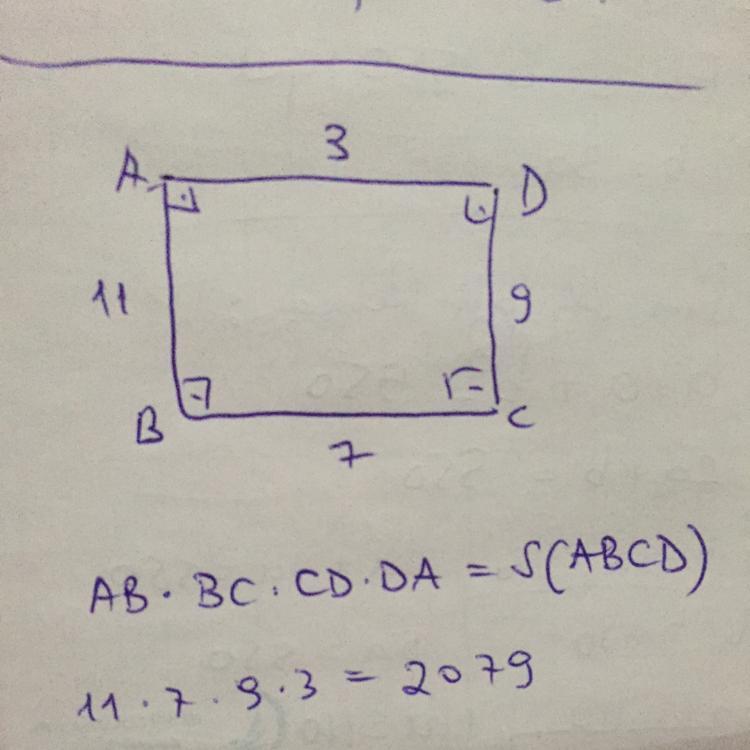 3
A D
11 9
B C
7
AB · BC · CD · DA = S(ABCD)
11 · 7 · 9 · 3 = 2079